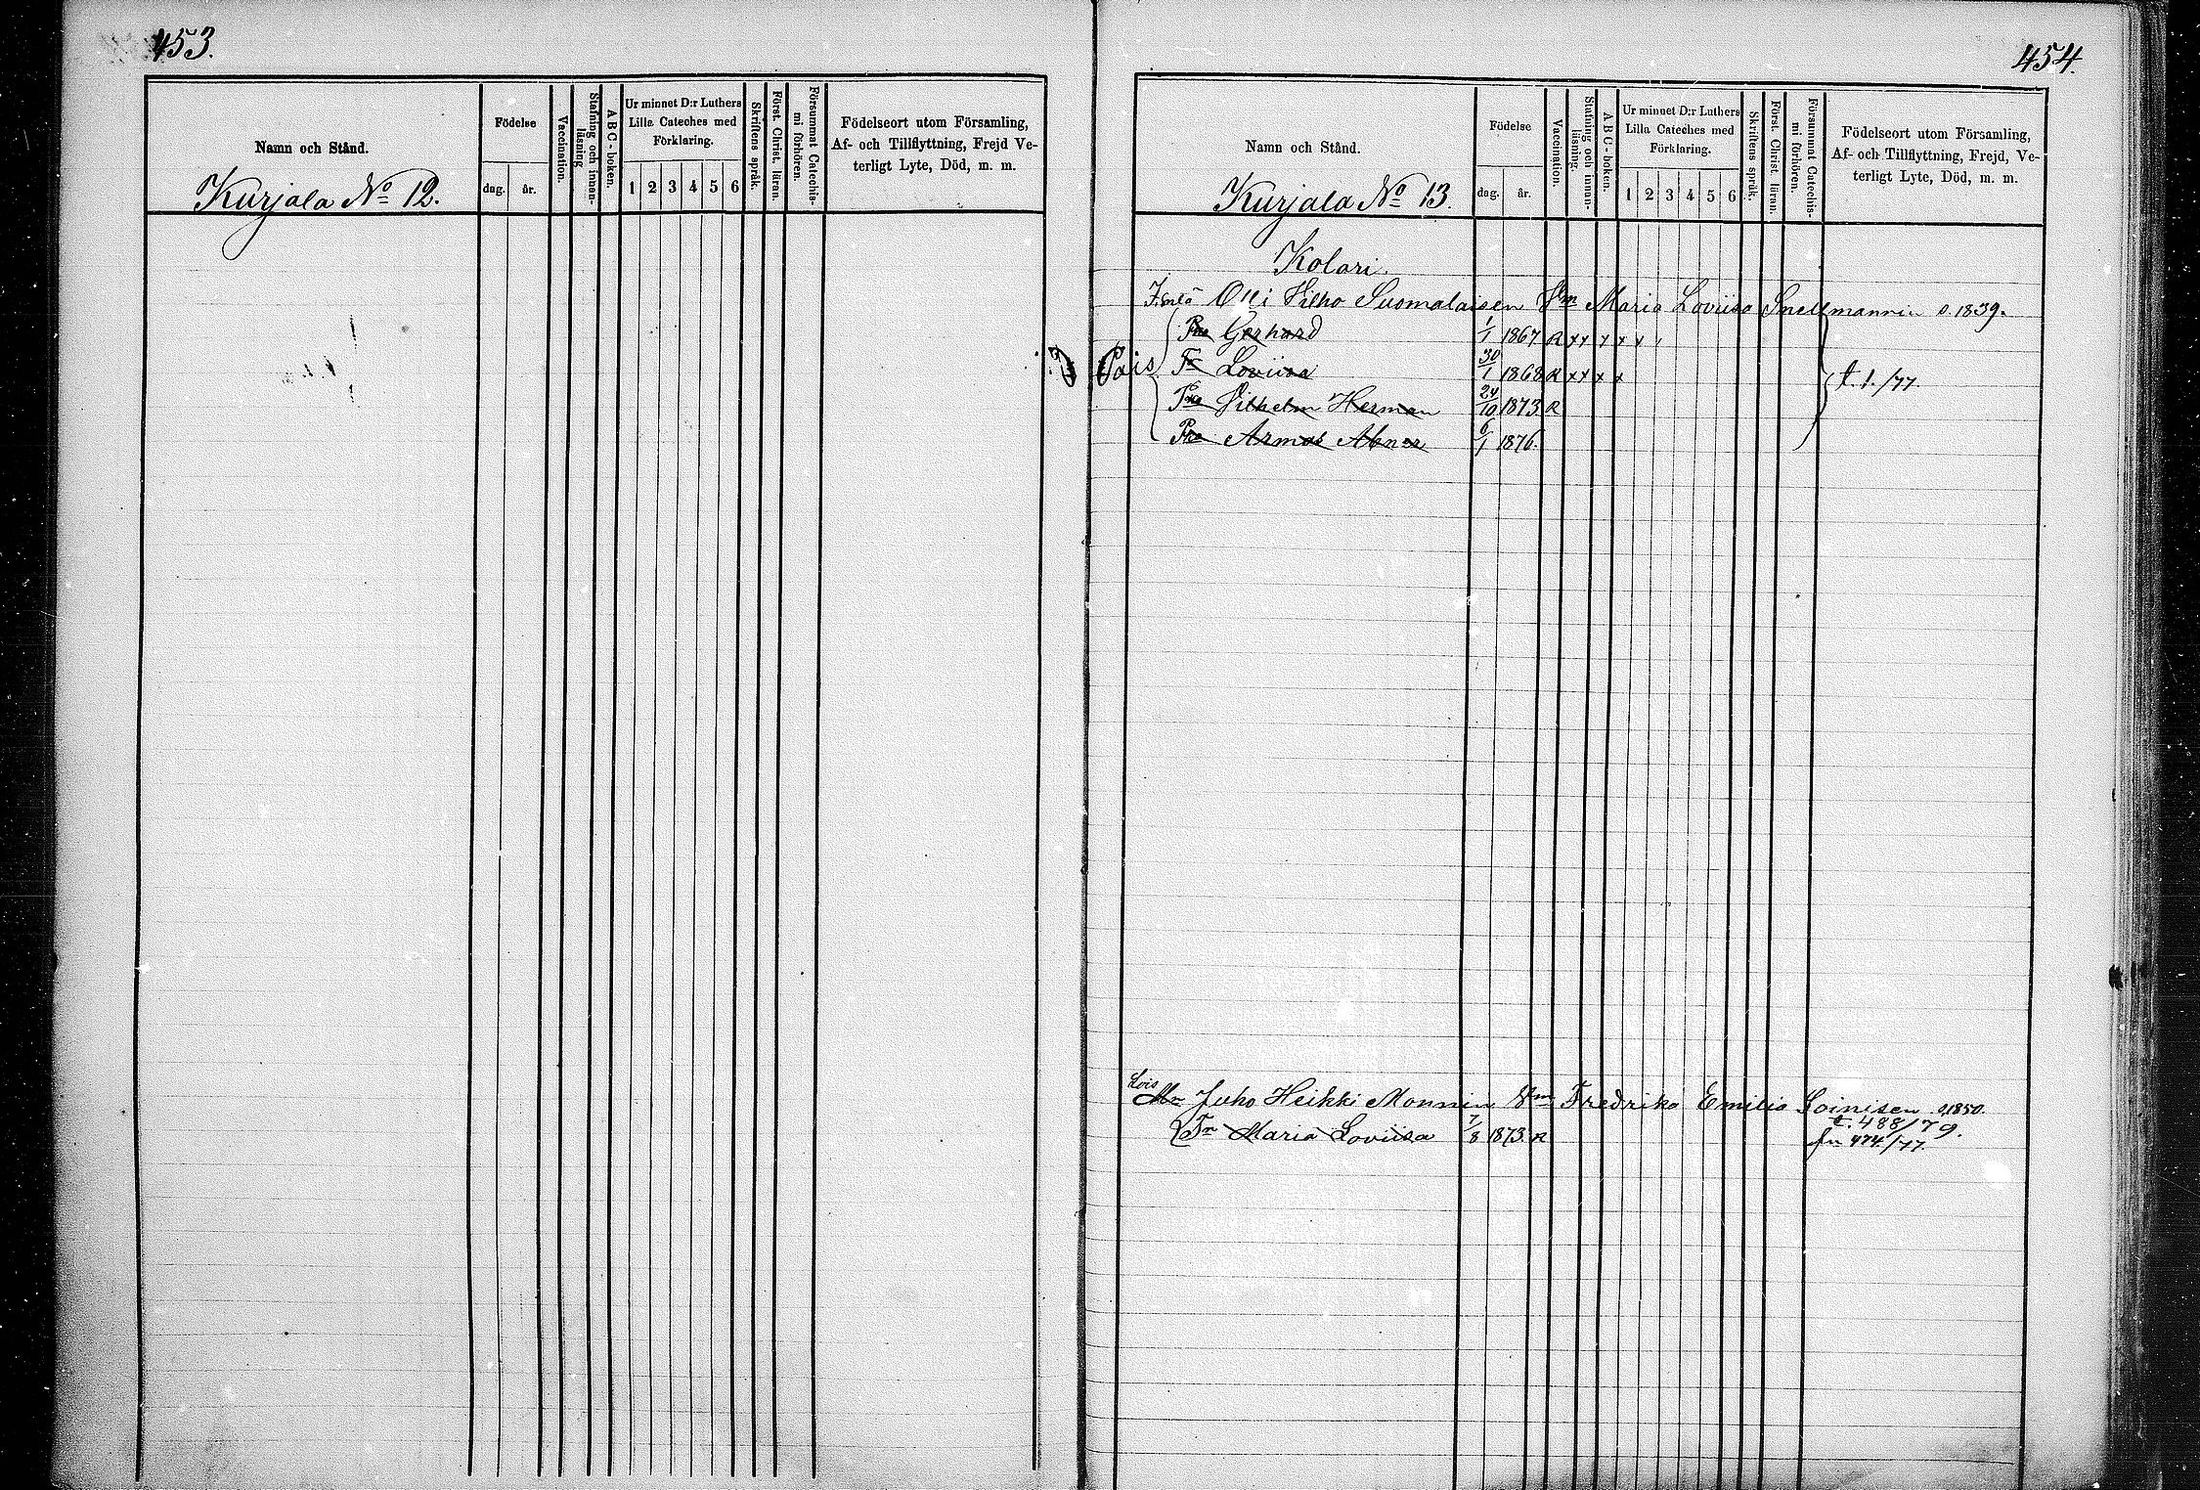 453.
Namn och Stånd.
Kurjala No 12.
Födelse
dag. år.
Vaccination.
Stafning och innan-
läsning
A B C - boken.
Ur minnet D:r Luthers
Lilla Cateches med
Förklaring.
1 2 3 4 5 6
Skriftens språk.
Först. Christ. läran.
Försummat Catechis-
mi förhören.
Födelseort utom Församling,
Af- och Tillflyttning, Frejd Ve-
terligt Lyte, Död, m. m.
454.
Namn och Stånd.
Kurjala No 13.
Födelse
dag. år.
Vaccination.
Stafning och innan-
läsning.
A B C - boken.
Ur minnet D:r Luthers
Lilla Cateches med
Förklaring.
1 2 3 4 5 6
Skriftens språk.
Först. Christ. läran.
Försummat Catechis-
mi förhören.
Födelseort utom Församling,
Af- och Tillflyttning, Frejd, Ve-
terligt Lyte, Död, m. m.
Kolari.
Olli Vilho Suomalaisen Vm Maria Loviisa Snellmannin s. 1839.
Pka Gerhard 1/1 1867 R x x x x x
Pois Tr Loviisa 30/1 1868 R x x x x t. 1./77.
Pka Vilhelm Herman 24/10 1873 R
Pka Armas Abner 6/1 1876.
Lois
Mn Juho Heikki Monnin Vm Fredrika Emilia Loinisen s. 1850.
t. 488/79.
Tr Maria Loviisa 7/8 1873. R
fr 474/77.